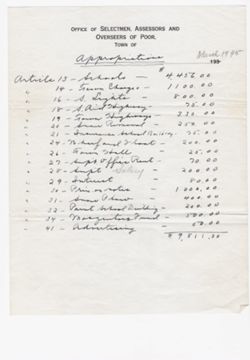 OFFICE OF SELECTMEN, ASSESSORS AND
OVERSEERS OF POOR,
TOWN OF
Appropriations March 1945
193
Article 13 - Schools - $ 4456.00
" 14 - Town Charges - 1100.00
" 16 - S. Lights - 800.00
" 18 - S. Aid Highway - 75.00
" 19 - Town Highways -
" 20 - Snow Removal - 250.00
" 21 - Insurance School Building - 75.00
" 24 - Wharf and Float - 200.00
" 26 - Town Hall - 25.00
" 27 - Supt Office Rent - 70.00
" 28 - Supt Salary - 200.00
" 29 - Interest - 80.00
" 30 - Prin on notes - 1000.00
" 31 - Snow Plow - 400.00
" 32 - Paint School Building - 200.00
" 34 - Fund - 500.00
" 41 - Advertising - 50.00
$ 9811.00